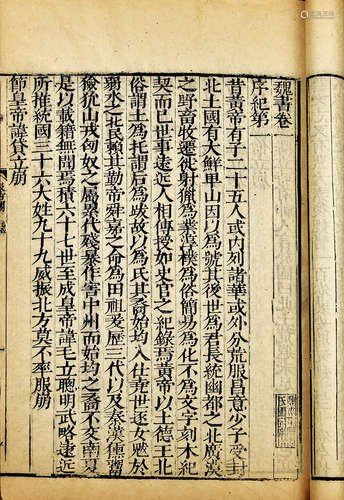 魏書卷
序紀第
昔黃帝有子二十五人或內列諸華或外分荒服昌意少子受封
北土國有大鮮卑山因以為號其後世為君長統幽都之北廣漠
之野畜牧遷徙射獵為業淳樸為俗簡易為化不為文字刻木紀
契而已世事遠近人相傳授如史官之紀錄焉黃帝以土德王北
俗謂土為托謂后為跋故以為氏其裔始均入仕堯世逐女魃於
弱水之北民賴其勤帝舜嘉之命為田祖爰歷三代以及秦漢獯鬻
獫狁山戎匈奴之屬累代殘暴作害中州而始均之裔不交南夏
是以載籍無聞焉積六十七世至成皇帝諱毛立聰明武略遠近
所推統國三十六大姓九十九威振北方莫不率服崩
節皇帝諱貸立崩